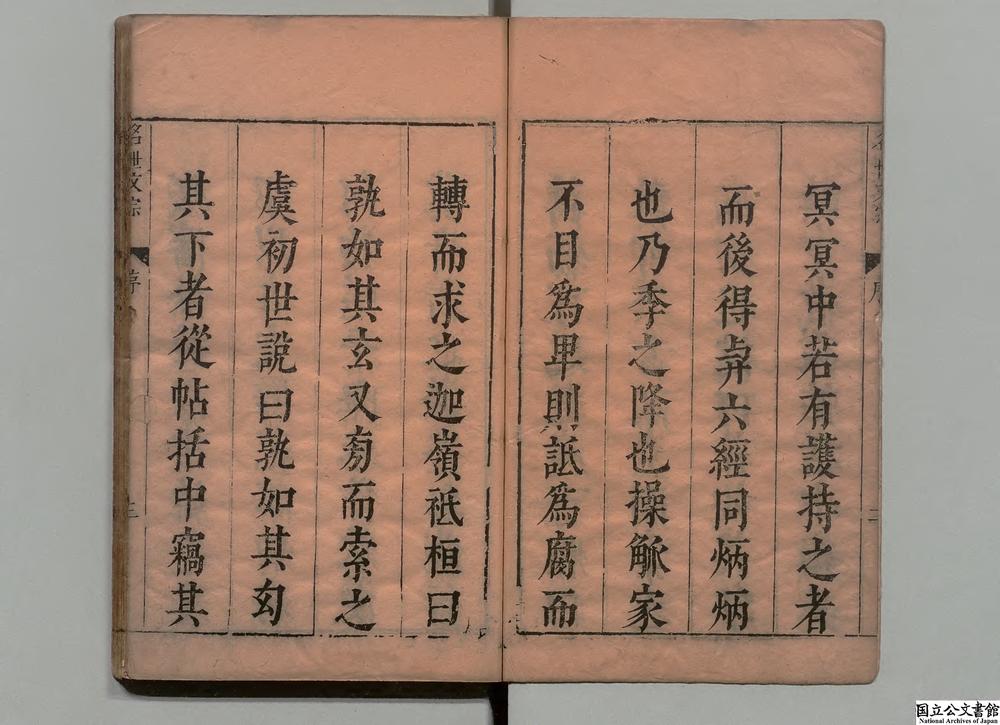 名世文宗 序 二
冥冥中若有護持之者
而後得与六經同炳炳
也乃季之降也操觚家
不目爲卑則詆爲腐而
轉而求之迦嶺祇桓曰
孰如其玄又旁而索之
虞初世說曰孰如其幻
其下者從帖括中竊其
名世文宗 序 三
国立公文書館
National Archives of Japan